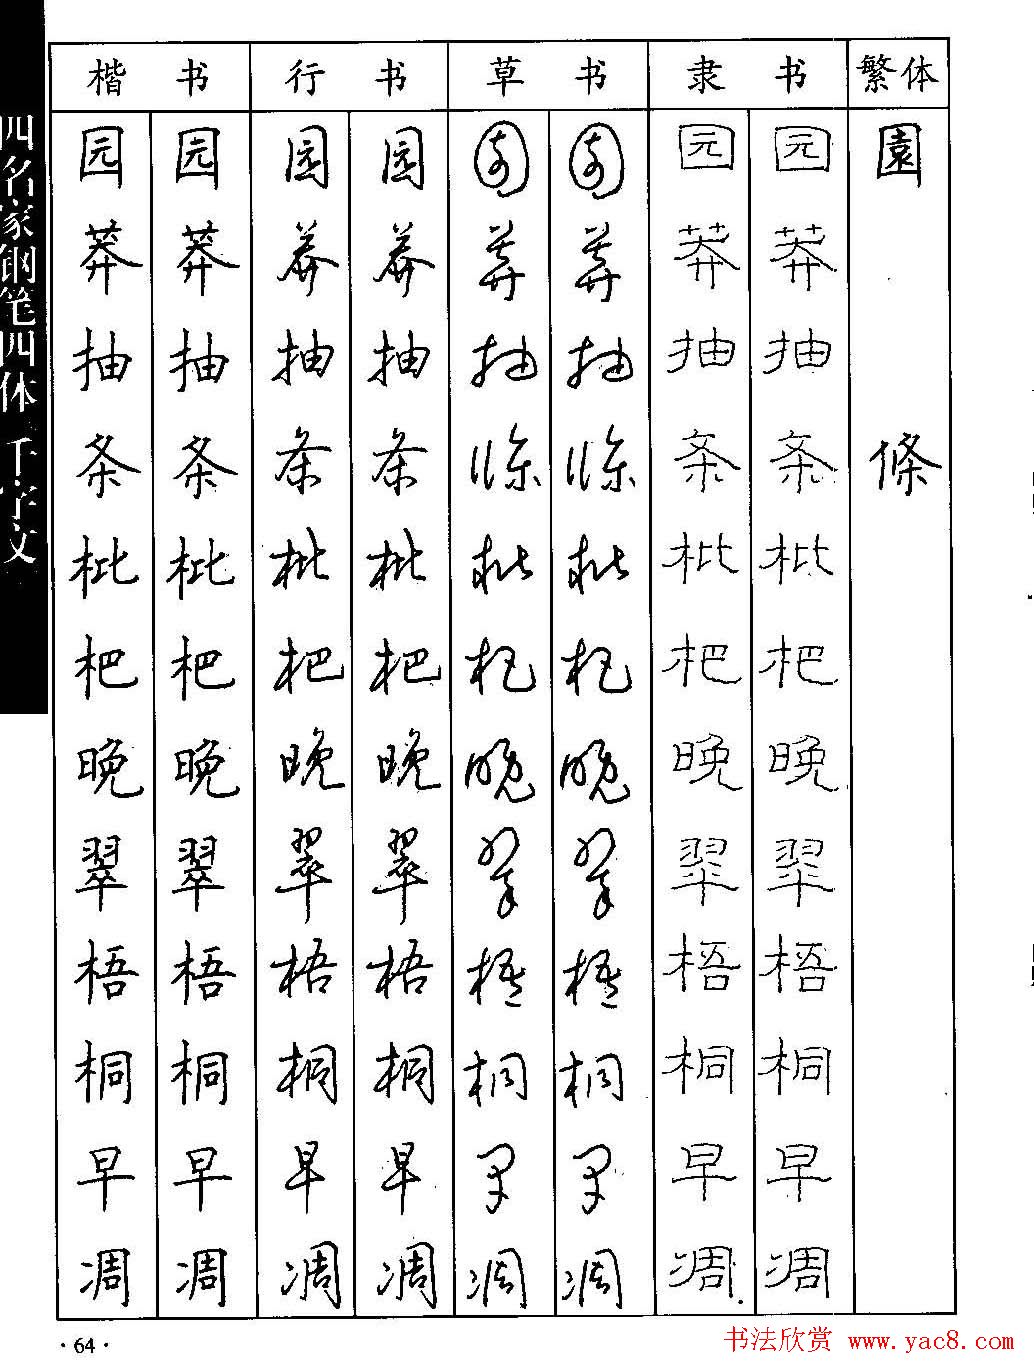 四名家钢笔四体千字文
楷书 行书 草书 隶书 繁体
园 园 园 园 园 园 园 园 園
莽 莽 莽 莽 莽 莽 莽 莽
抽 抽 抽 抽 抽 抽 抽 抽
条 条 条 条 条 条 条 条 條
枇 枇 枇 枇 枇 枇 枇 枇
杷 杷 杷 杷 杷 杷 杷 杷
晚 晚 晚 晚 晚 晚 晚 晚
翠 翠 翠 翠 翠 翠 翠 翠
梧 梧 梧 梧 梧 梧 梧 梧
桐 桐 桐 桐 桐 桐 桐 桐
早 早 早 早 早 早 早 早
凋 凋 凋 凋 凋 凋 凋 凋
·64·
书法欣赏 www.yac8.com